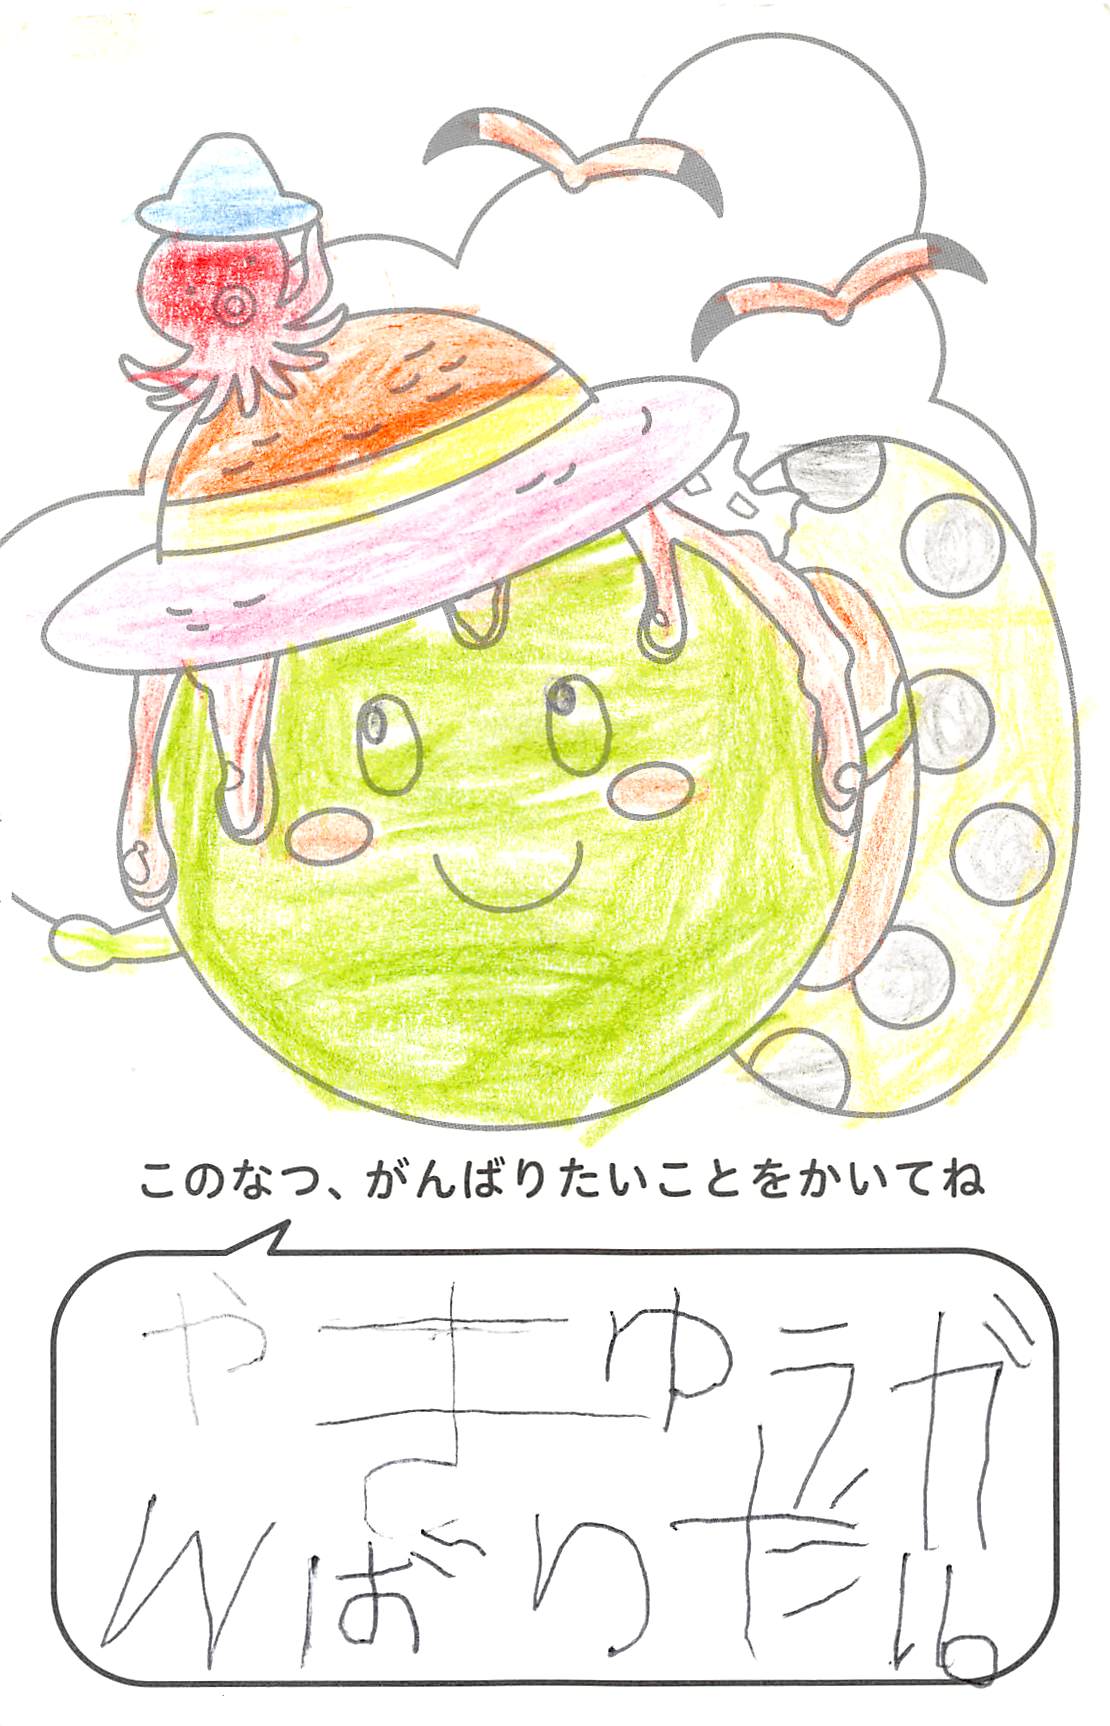 このなつ、がんばりたいことをかいてね
やまゆうが
んばりたい